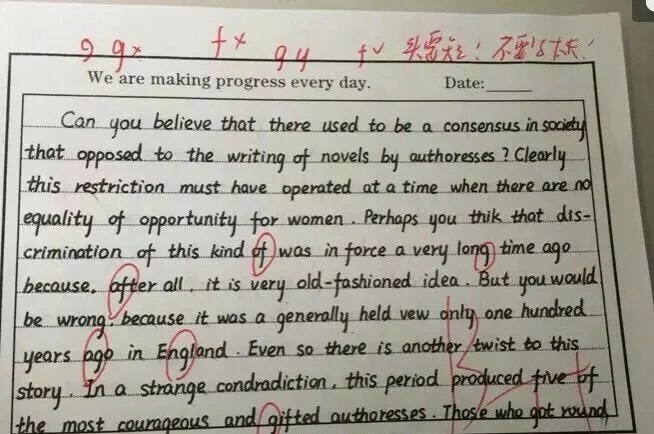 9 g× f× g y f✓ 头要短！不要写太长！
We are making progress every day. Date:
Can you believe that there used to be a consensus in society
that opposed to the writing of novels by authoresses? Clearly
this restriction must have operated at a time when there are no
equality of opportunity for women. Perhaps you thik that dis-
crimination of this kind of was in force a very long time ago
because. after all, it is very old-fashioned idea. But you would
be wrong, because it was a generally held vew only one hundred
years ago in England. Even so there is another twist to this
story. In a strange condradiction, this period produced five of
the most courageous and gifted authoresses. Those who got round